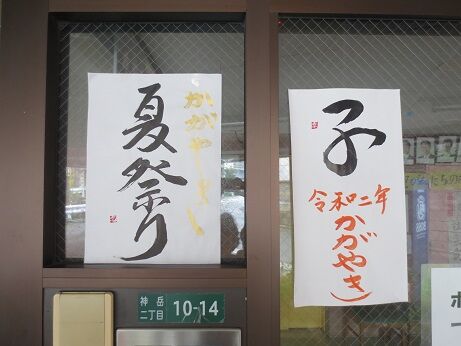 かがやき
夏祭り
子
令和二年
かがやき
神岳
二丁目
10-14